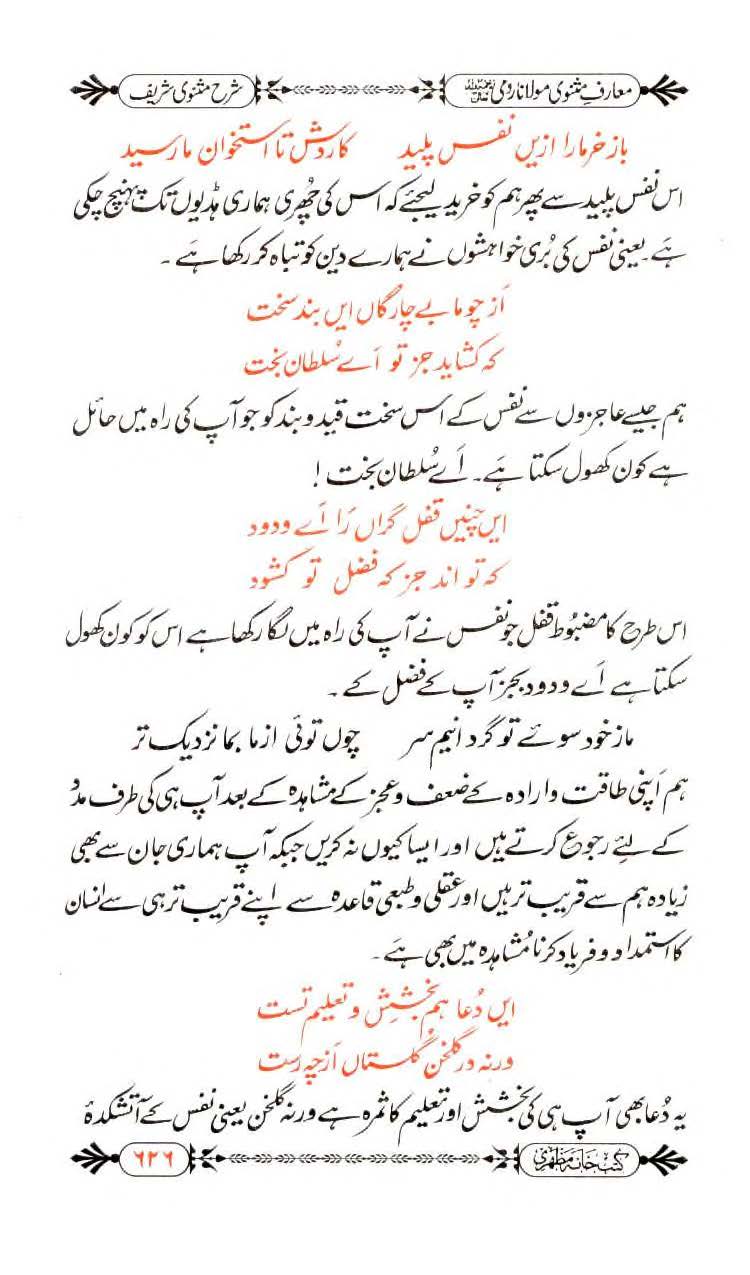 معارفِ مثنوی مولانا رومی رحمۃ اللہ علیہ شرح مثنوی شریف
باز خر ما را ازیں نفس پلید کاردش تا استخوان ما رسید
اس نفس پلید سے پھر ہم کو خرید لیجئے کہ اس کی چُھری ہماری ہڈیوں تک پہنچ چکی
ہَے۔ یعنی نفس کی بُری خواہشوں نے ہمارے دین کو تباہ کر رکھا ہَے۔
اَز چو ما بے چارگاں ایں بند سخت
کہ کشاید جز تو اَے سُلطان بخت
ہم جیسے عاجزوں سے نفس کے اس سخت قید و بند کو جو آپ کی راہ میں حائل
ہے کون کھول سکتا ہَے۔ اَے سُلطان بخت !
ایں چنیں قفل گراں رَا اَے ودود
کہ تو اند جز کہ فضل تو کشود
اس طرح کا مضبُوط قفل جو نفس نے آپ کی راہ میں لگا رکھا ہے اس کو کون کھول
سکتا ہے اَے ودود بجز آپ کے فضل کے۔
ما ز خود سوئے تو گردانیم سر چوں توئی از ما بما نزدیک تر
ہم اَپنی طاقت و ارادہ کے ضعف و عجز کے مشاہدہ کے بعد آپ ہی کی طرف مدد
کے لئے رجوع کرتے ہیں اور ایسا کیوں نہ کریں جبکہ آپ ہماری جان سے بھی
زیادہ ہم سے قریب تر ہیں اور عقلی و طبعی قاعدہ سے اپنے قریب تر ہی سے انسان
کا استمداد و فریاد کرنا مُشاہدہ میں بھی ہَے۔
ایں دُعا ہم بخشِش و تعلیم تست
ورنہ در گلخن گُلستاں اَز چہ رست
یہ دُعا بھی آپ ہی کی بخشش اور تعلیم کا ثمرہ ہے ورنہ گلخن یعنی نفس کے آتشکدۂ
کتب خانہ مظہری ۶۲۶